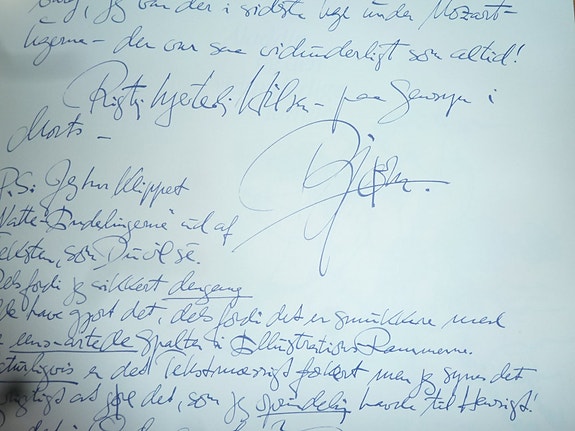 jeg var der i sidste Uge under Mozart-
ugerne - der var saa vidunderligt som altid!
Rigtig hjertelig Hilsen - paa Gensyn i
Marts -
Björn
P.S. Jeg har klippet
ud af
Teksten, som Du vil se.
Dels fordi jeg sikkert dengang
have gjort det, dels fordi det er smukkere med
ensartede Spalter i Illustrations Rammerne.
Naturligvis er det Tekstmæssigt forkert men jeg synes det
rigtigt at gøre det, som jeg oprindelig havde til Hensigt!